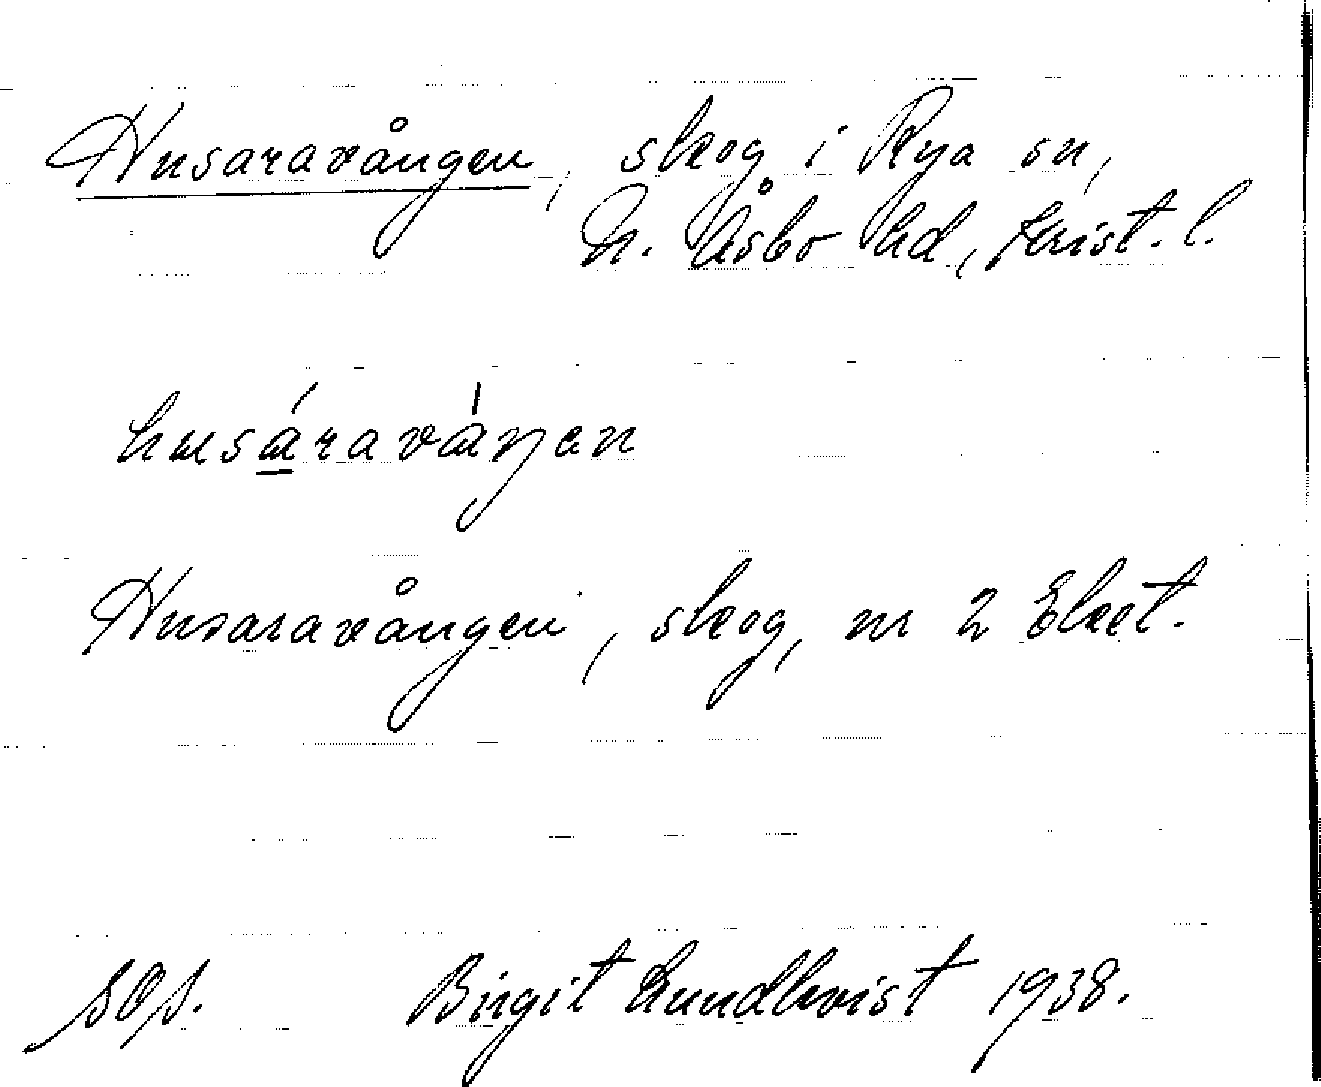 Husaravången, skog i Rya sn,
N. Åsbo hd, Krist. l.
husáravάŋen
Husaravången, skog, nr 2 Eket.
Birgit Lundkvist 1938.